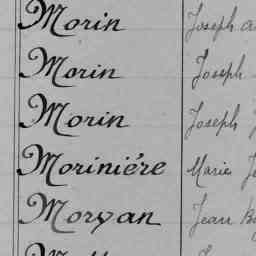 Morin Joseph
Morin Joseph
Morin Joseph
Moriniére Marie
Morvan Jean